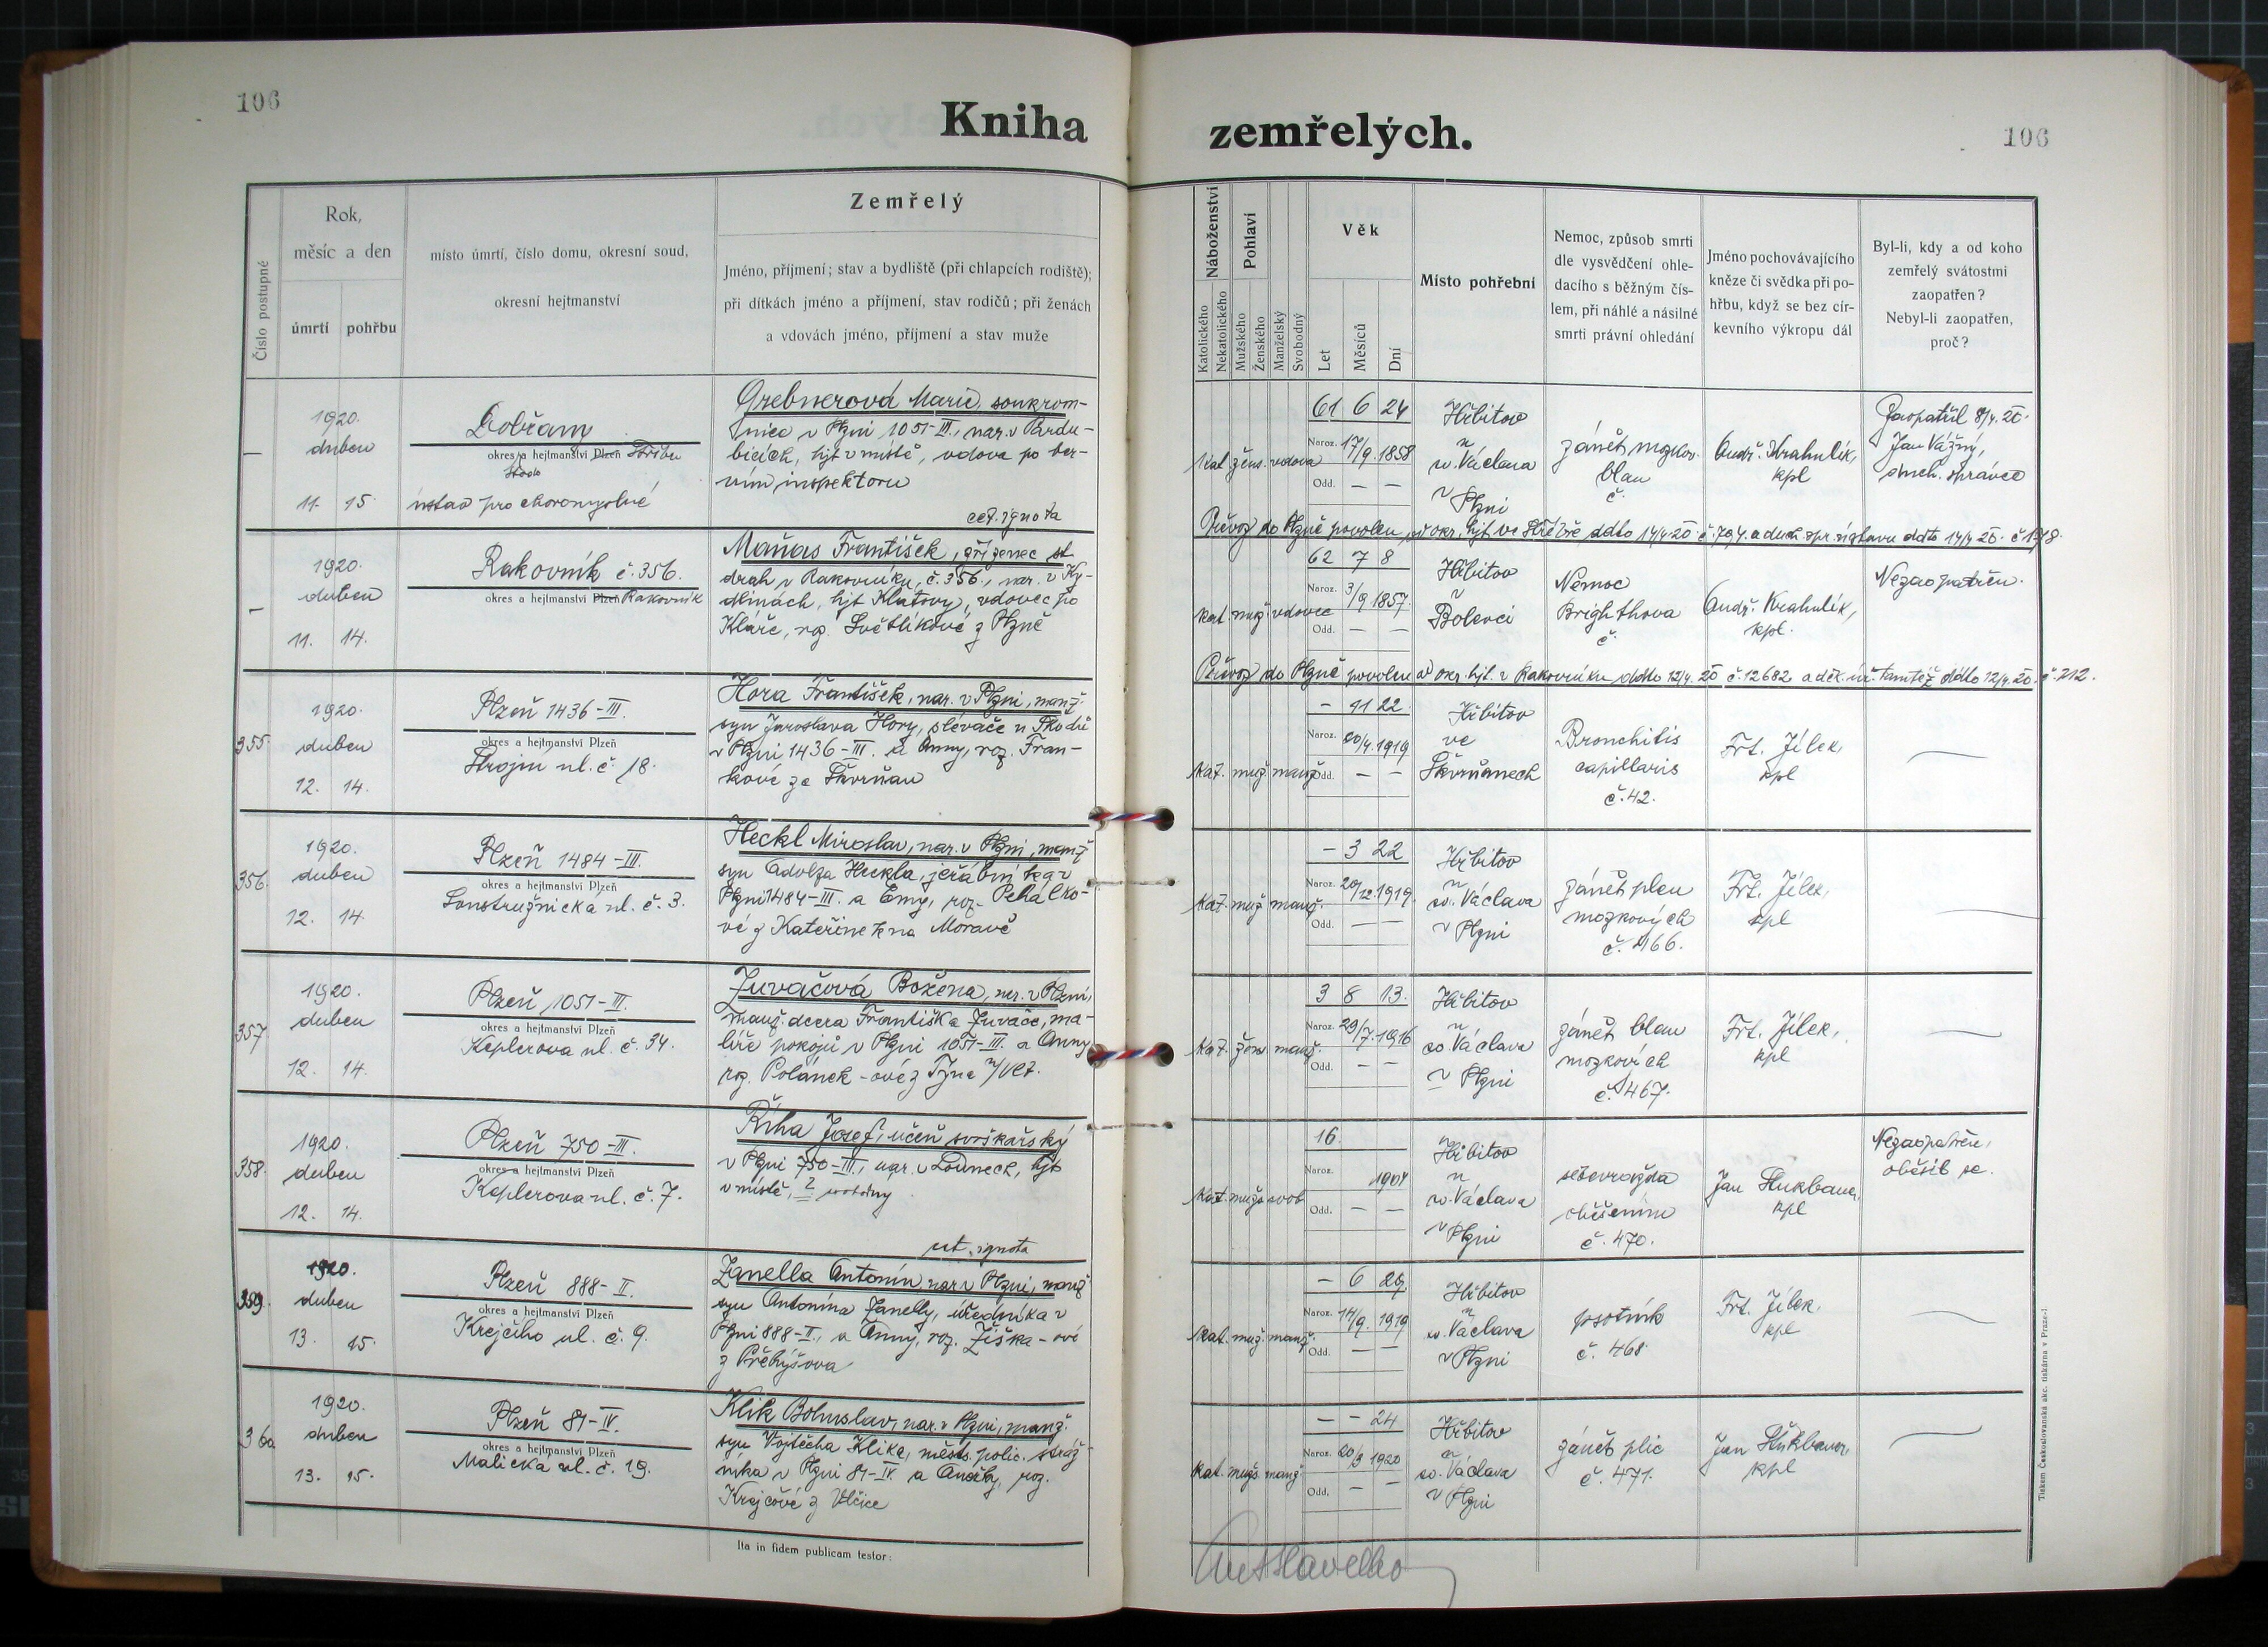 106
Kniha
zemřelých.
106
Číslo postupné
Rok,
měsíc a den
úmrtí
pohřbu
místo úmrtí, číslo domu, okresní soud,
okresní hejtmanství
Zemřelý
Jméno, příjmení; stav a bydliště (při chlapcích rodiště);
při dítkách jméno a příjmení, stav rodičů; při ženách
a vdovách jméno, příjmení a stav muže
Náboženství
Katolického
Nekatolického
Pohlaví
Mužského
Ženského
Manželský
Svobodný
Věk
Let
Měsíců
Dní
Místo pohřební
Nemoc, způsob smrti
dle vysvědčení ohle-
dacího s běžným čís-
lem, při náhlé a násilné
smrti právní ohledání
Jméno pochovávajícího
kněze či svědka při po-
hřbu, když se bez cír-
kevního výkropu dál
Byl-li, kdy a od koho
zemřelý svátostmi
zaopatřen?
Nebyl-li zaopatřen,
proč?
—
1920.
duben
11. 15.
Dobřany
okres a hejtmanství Plzeň Stříbro
ústav pro choromyslné
Grebnerová Marie, soukrom-
nice v Plzni 1051-III., nar. v Pardu-
bicích, hjt v místě, vdova po ber-
ním inspektoru
cet. ignota
kat. žens. vdova
61 6 24
Naroz. 17/9. 1858
Odd. — —
Hřbitov
u
sv. Václava
v Plzni
zánět mozkov.
blan
č.
Ondř. Krahulík,
kpl
Zaopatřil 8/4. 20.
Jan Vážný,
duch. správce
Převoz do Plzně povolen od okr. hjt. ve Stříbře ddto 14/4 20. č. 794. a duch. spr. ústavu ddto 14/4 20. č. 1918.
—
1920.
duben
11. 14.
Rakovník č. 356.
okres a hejtmanství Plzeň Rakovník
Maňas František, zřízenec st.
drah v Rakovníku, č. 356., nar. v Ky-
dlinách, hjt Klatovy, vdovec po
Kláře, roz. Světlíkové z Plzně
kat. muž. vdovec
62 7 8
Naroz. 3/9 1857.
Odd. — —
Hřbitov
v
Bolevci
Nemoc
Brighthova
č.
Ondř. Krahulík,
kpl.
Nezaopatřen.
Převoz do Plzně povolen od okr. hjt. v Rakovníku ddto 12/4. 20 č. 12682 a děk. úř. tamtéž ddto 12/4. 20. č. 212.
355.
1920.
duben
12. 14.
Plzeň 1436-III.
okres a hejtmanství Plzeň
Strojní ul. č. 18.
Hora František, nar. v Plzni, manž.
syn Jaroslava Hory, slévače u Škodů
v Plzni 1436-III. a Anny, roz. Fran-
kové ze Škvrňan
kat. muž. manž.
— 11 22.
Naroz. 20/4. 1919
Odd. — —
Hřbitov
ve
Škvrňanech
Bronchitis
capillaris
č. 42.
Frt. Jílek,
kpl
356.
1920.
duben
12. 14.
Plzeň 1484-III.
okres a hejtmanství Plzeň
Soustružnická ul. č. 3.
Heckl Miroslav, nar. v Plzni, manž.
syn Adolfa Heckla, jeřábníka v
Plzni 1484-III. a Emy, roz. Pehalko-
vé z Kateřinek na Moravě
kat. muž. manž.
— 3 22
Naroz. 20/12. 1919.
Odd. —
Hřbitov
u
sv. Václava
v Plzni
zánět plen
mozkových
č. 466.
Frt. Jílek,
kpl
357.
1920.
duben
12. 14.
Plzeň 1051-III.
okres a hejtmanství Plzeň
Keplerova ul. č. 34.
Juvačová Božena, nar. v Plzni,
manž. dcera Františka Juvače, ma-
líře pokojů v Plzni 1051-III. a Anny
roz. Polánek-ové z Týna n/Vlt.
kat. žens. manž.
3 8 13.
Naroz. 29/7. 1916
Odd. — —
Hřbitov
u
sv. Václava
v Plzni
zánět blan
mozkových
č. 467.
Frt. Jílek,
kpl
358.
1920.
duben
12. 14.
Plzeň 750-III.
okres a hejtmanství Plzeň
Keplerova ul. č. 7.
Říha Josef, učeň soškařský
v Plzni 750-III., nar. v Lounech, hjt
v místě,
cet. ignota
kat. mužs. svob
16
Naroz. 1904
Odd. — —
Hřbitov
u
sv. Václava
v Plzni
sebevražda
oběšením
č. 470.
Jan Hukbauer,
kpl
Nezaopatřen,
oběsil se.
359.
1920.
duben
13. 15.
Plzeň 888-II.
okres a hejtmanství Plzeň
Krejčího ul. č. 9.
Zanella Antonín, nar. v Plzni, manž.
syn Antonína Zanelly, úředníka v
Plzni 888-II., a Anny, roz. Žiška-ové
z Přehýšova
kat. muž. manž.
— 6 29.
Naroz. 14/9. 1919
Odd. — —
Hřbitov
u
sv. Václava
v Plzni
psotník
č. 468.
Frt. Jílek,
kpl
360
1920.
duben
13. 15.
Plzeň 81-IV.
okres a hejtmanství Plzeň
Malická ul. č. 19.
Klik Bohuslav, nar. v Plzni, manž.
syn Vojtěcha Klika, městs. polic. stráž-
níka v Plzni 81-IV. a Anežky, roz.
Krejčové z Vlčice
kat. mužs. manž
— — 24
Naroz. 20/3 1920
Odd. — —
Hřbitov
u
sv. Václava
v Plzni
zánět plic
č. 471.
Jan Hukbauer,
kpl
Ita in fidem publicam testor:
Tiskem Československá akc. tiskárna v Praze.